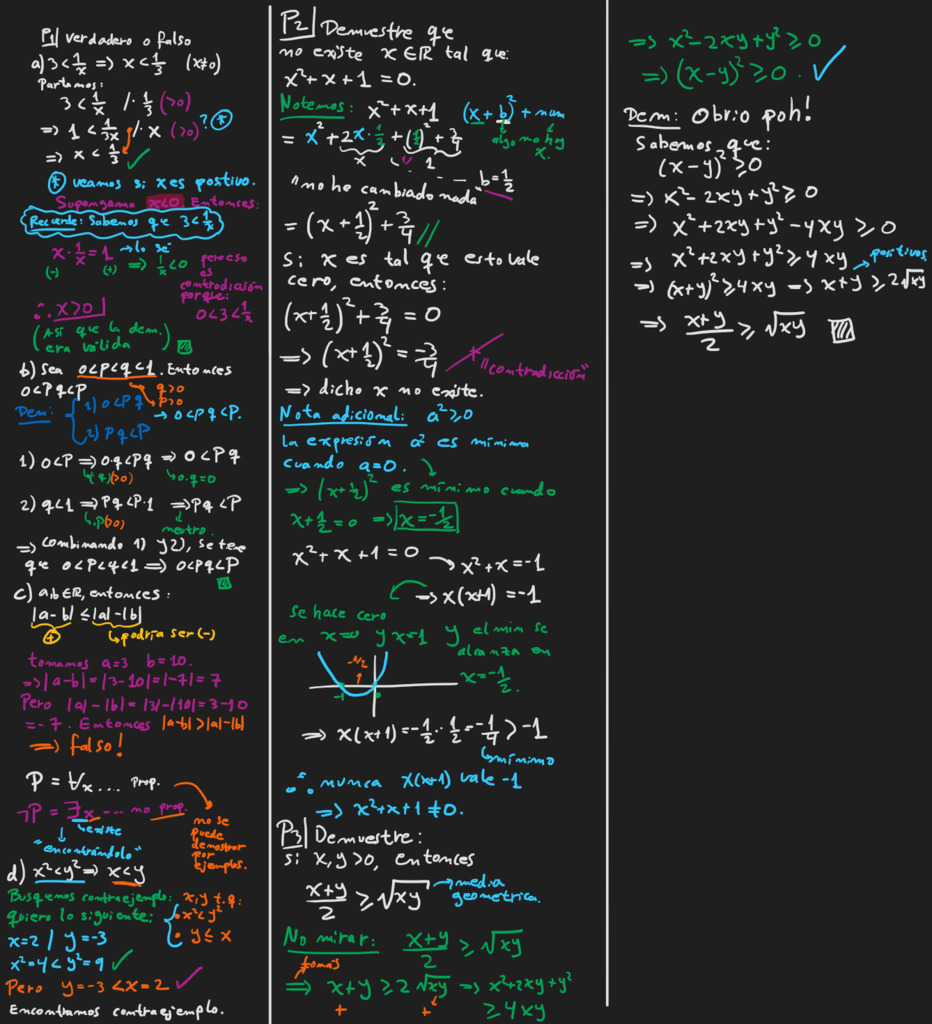 P1| Verdadero o falso
a) 3 < 1/x => x < 1/3 (x≠0)
Partamos:
3 < 1/x /· 1/3 (>0)
=> 1 < 1/3x /· x (>0)? *
=> x < 1/3 ✓
* veamos si x es positivo.
Supongamo x<0 Entonces:
Recuerde: Sabemos que 3 < 1/x
x · 1/x = 1 → lo sé
(-) (+) => 1/x < 0 pero eso es contradicción porque:
0 < 3 < 1/x
∴ x > 0
(Así que la dem. era válida)
b) Sea 0<p<q<1. Entonces
0<pq<p
q>0
p>0
Dem: { 1) 0<pq
2) pq<p
→ 0<pq<p.
1) 0<p => 0·q<pq => 0<pq
(·q)(>0) 0·q=0
2) q<1 => pq<p·1 => pq<p
·p(>0) neutro.
=> Combinando 1) y 2), se tiene
que 0<p<q<1 => 0<pq<p
c) a,b∈R, entonces:
|a-b| ≤ |a|-|b|
+ podría ser (-)
tomamos a=3 b=10.
=> |a-b| = |3-10| = |-7| = 7
Pero |a|-|b| = |3|-|10| = 3-10
= -7. Entonces |a-b| > |a|-|b|
=> falso!
P = ∀x ... prop.
¬P = ∃x ... no prop.
existe
"encontrándolo"
no se puede demostrar por ejemplos.
d) x²<y² => x<y
Busquemos contraejemplo: x,y t.q:
quiero lo siguiente: { • x²<y²
• y ≤ x
x=2 / y=-3
x²=4 < y²=9 ✓
Pero y=-3 < x=2 ✓
Encontramos contraejemplo.
P2| Demuestre que
no existe x∈R tal que:
x²+x+1 = 0.
Notemos: x²+x+1 (x+b)² + num
algo no hay x.
= x²+2x·1/2 + (1/2)² + 3/4
x 1
b=1/2
"no he cambiado nada"
= (x+1/2)² + 3/4 //
Si x es tal que esto vale
cero, entonces:
(x+1/2)² + 3/4 = 0
=> (x+1/2)² = -3/4
"contradicción"
=> dicho x no existe.
Nota adicional: a²≥0
la expresión a² es mínima
cuando a=0.
=> (x+1/2)² es mínimo cuando
x+1/2=0 => x=-1/2
x²+x+1=0 → x²+x=-1
=> x(x+1) = -1
se hace cero
en x=0 y x=1 y el min se
alcanza en
x=-1/2.
-1/2
-1 0
=> x(x+1) = -1/2 · 1/2 = -1/4 > -1
mínimo
∴ nunca x(x+1) vale -1
=> x²+x+1≠0.
P3| Demuestre:
Si x,y>0, entonces
x+y/2 ≥ √xy → media geométrica.
No mirar: x+y/2 ≥ √xy
=> x+y ≥ 2√xy => x²+2xy+y²
+ + ≥ 4xy
=> x²-2xy+y² ≥ 0
=> (x-y)² ≥ 0. ✓
Dem: Obvio poh!
Sabemos que:
(x-y)² ≥ 0
=> x²-2xy+y² ≥ 0
=> x²+2xy+y²-4xy ≥ 0
=> x²+2xy+y² ≥ 4xy
positivos
=> (x+y)² ≥ 4xy => x+y ≥ 2√xy
=> x+y/2 ≥ √xy